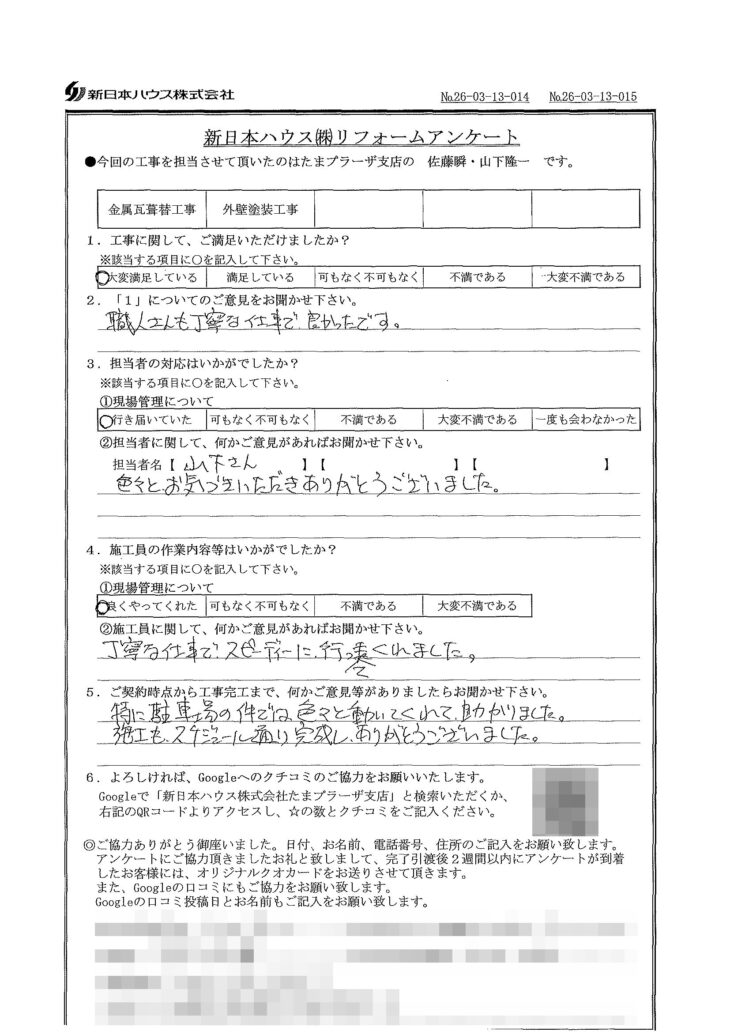 新日本ハウス株式会社
№26-03-13-014 №26-03-13-015
新日本ハウス㈱リフォームアンケート
●今回の工事を担当させて頂いたのはたまプラーザ支店の 佐藤瞬・山下隆一 です。
金属瓦葺替工事 外壁塗装工事
1．工事に関して、ご満足いただけましたか？
※該当する項目に○を記入して下さい。
大変満足している 満足している 可もなく不可もなく 不満である 大変不満である
2．「1」についてのご意見をお聞かせ下さい。
職人さんも丁寧な仕事で良かったです。
3．担当者の対応はいかがでしたか？
※該当する項目に○を記入して下さい。
①現場管理について
行き届いていた 可もなく不可もなく 不満である 大変不満である 一度も会わなかった
②担当者に関して、何かご意見があればお聞かせ下さい。
担当者名【 山下さん 】【 】【 】
色々とお気づきいただきありがとうございました。
4．施工員の作業内容等はいかがでしたか？
※該当する項目に○を記入して下さい。
①現場管理について
良くやってくれた 可もなく不可もなく 不満である 大変不満である
②施工員に関して、何かご意見があればお聞かせ下さい。
丁寧な仕事で、スピーディーに、行ってくれました。
5．ご契約時点から工事完工まで、何かご意見等がありましたらお聞かせ下さい。
特に駐車場の件では、色々と動いてくれて、助かりました。
スケジュール通り完成し、ありがとうございました。
6．よろしければ、Googleへのクチコミのご協力をお願いいたします。
Googleで「新日本ハウス株式会社たまプラーザ支店」と検索いただくか、
右記のQRコードよりアクセスし、☆の数とクチコミをご記入ください。
◎ご協力ありがとう御座いました。日付、お名前、電話番号、住所のご記入をお願い致します。
アンケートにご協力頂きましたお礼と致しまして、完了引渡後2週間以内にアンケートが到着
したお客様には、オリジナルクオカードをお送りさせて頂きます。
また、Googleの口コミにもご協力をお願い致します。
Googleの口コミ投稿日とお名前もご記入をお願い致します。